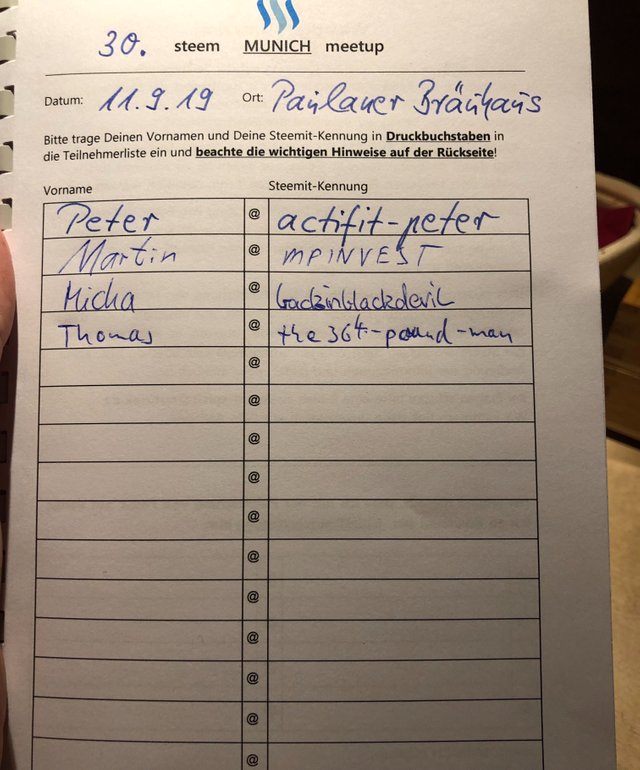 30. steem MUNICH meetup
Datum: 11.9.19 Ort: Paulaner Bräuhaus
Bitte trage Deinen Vornamen und Deine Steemit-Kennung in Druckbuchstaben in
die Teilnehmerliste ein und beachte die wichtigen Hinweise auf der Rückseite!
Vorname Steemit-Kennung
Peter @ actifit-peter
Martin @ MPINVEST
Micha @ backinblackdevil
Thomas @ the364-pound-man
@
@
@
@
@
@
@
@
@
@
@